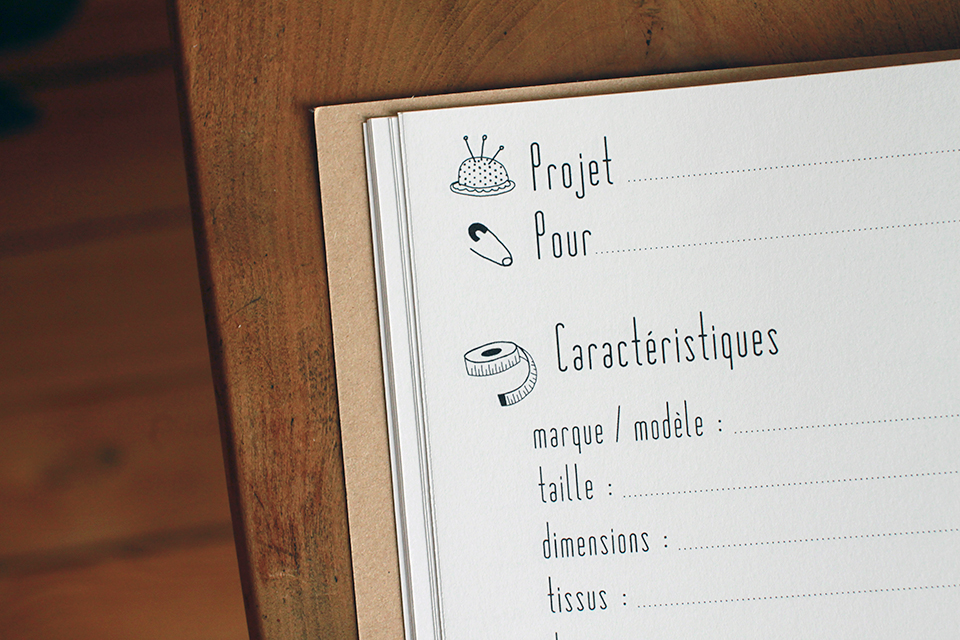 Projet
Pour
Caractéristiques
marque / modèle :
taille :
dimensions :
tissus :